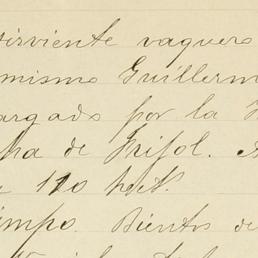 sirviente vaquero
mismo Guillerm
argado por la
cha de Frijol.
110 hect.
impo. Vientos de